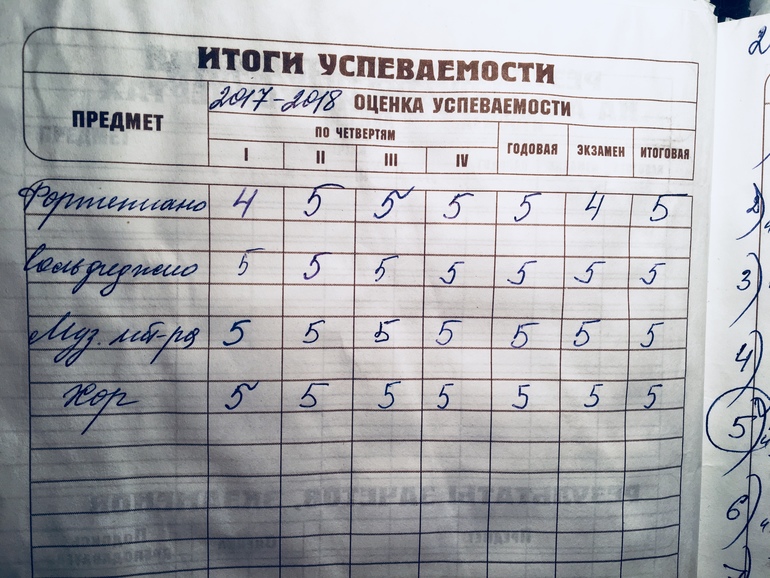 ИТОГИ УСПЕВАЕМОСТИ
ПРЕДМЕТ
2017-2018 ОЦЕНКА УСПЕВАЕМОСТИ
ПО ЧЕТВЕРТЯМ
ГОДОВАЯ ЭКЗАМЕН ИТОГОВАЯ
I II III IV
Фортепиано 4 5 5 5 5 4 5
Сольфеджио 5 5 5 5 5 5 5
Муз. лит-ра 5 5 5 5 5 5 5
Хор 5 5 5 5 5 5 5
РЕЗУЛЬТАТЫ ЗАЧЕТОВ, ЭКЗАМЕНОВ
2
2)
3)
4)
5)
6)